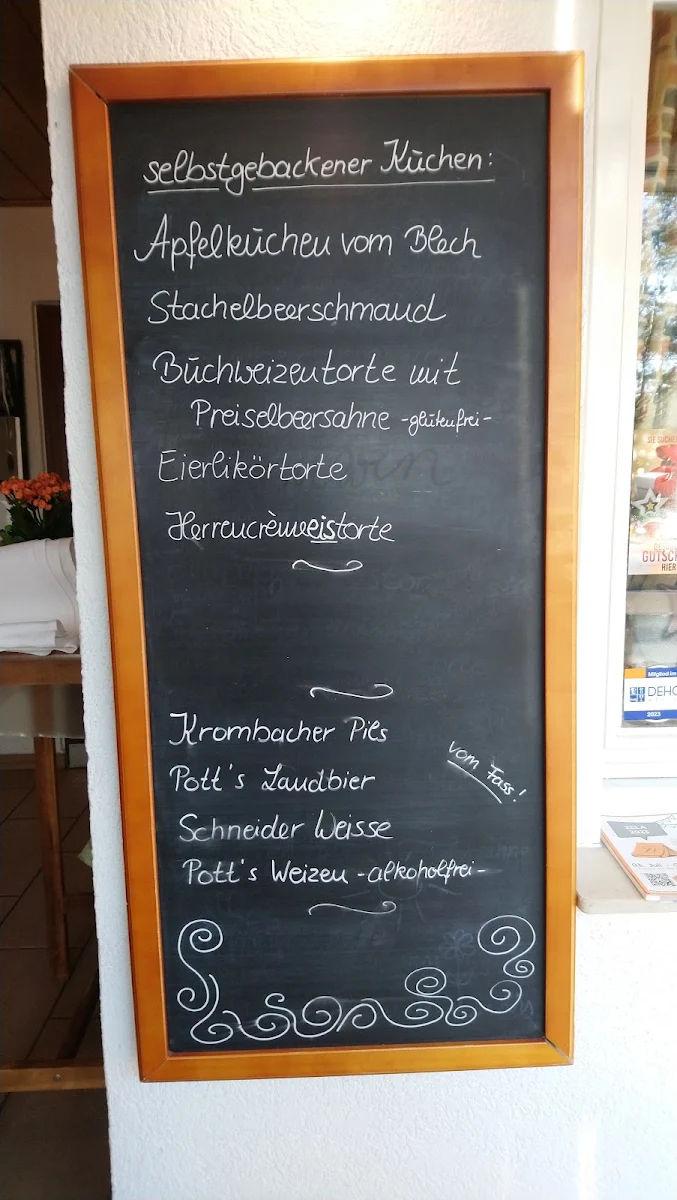 selbstgebackener Kuchen:
Apfelkuchen vom Blech
Stachelbeerschmand
Buchweizentorte mit
Preiselbeersahne -glutenfrei-
Eierlikörtorte
Herrencrèmeeistorte
Krombacher Pils
vom Fass!
Pott's Landbier
Schneider Weisse
Pott's Weizen -alkoholfrei-
SIE SUCHEN
GUTSCH
HIER
Mitglied im
DEHO
2023